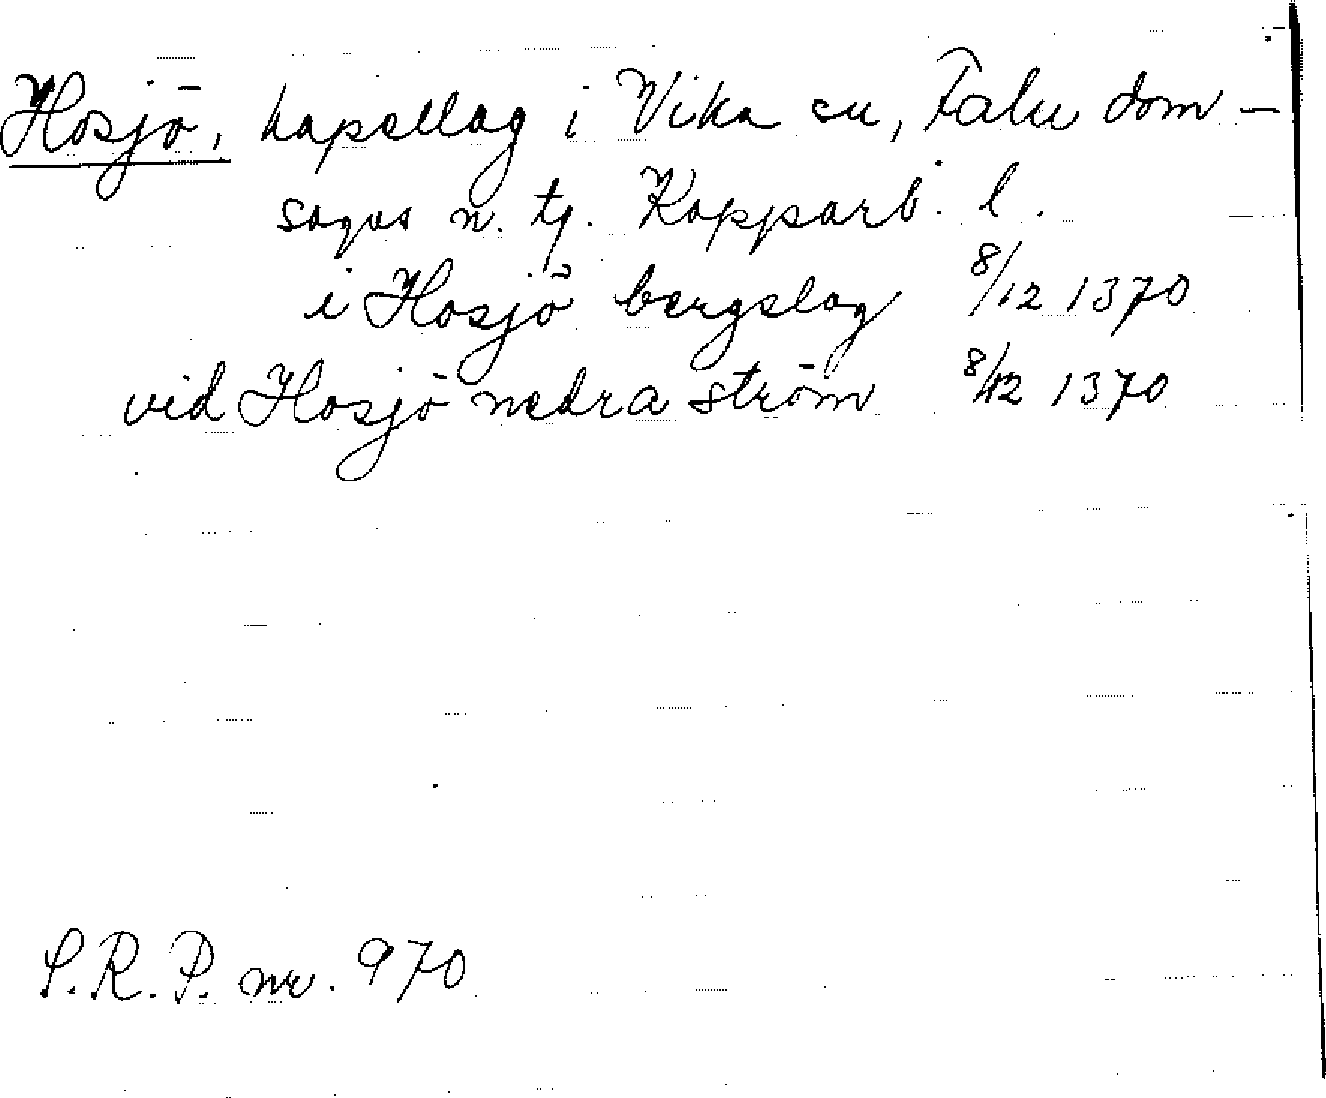 Hosjö, kapellag i Vika sn, Falu dom-
sagas n. tg. Kopparb. l.
i Hosjö bergslag 8/12 1370
vid Hosjö nedra ström 8/12 1370
S.R.P. nr. 970